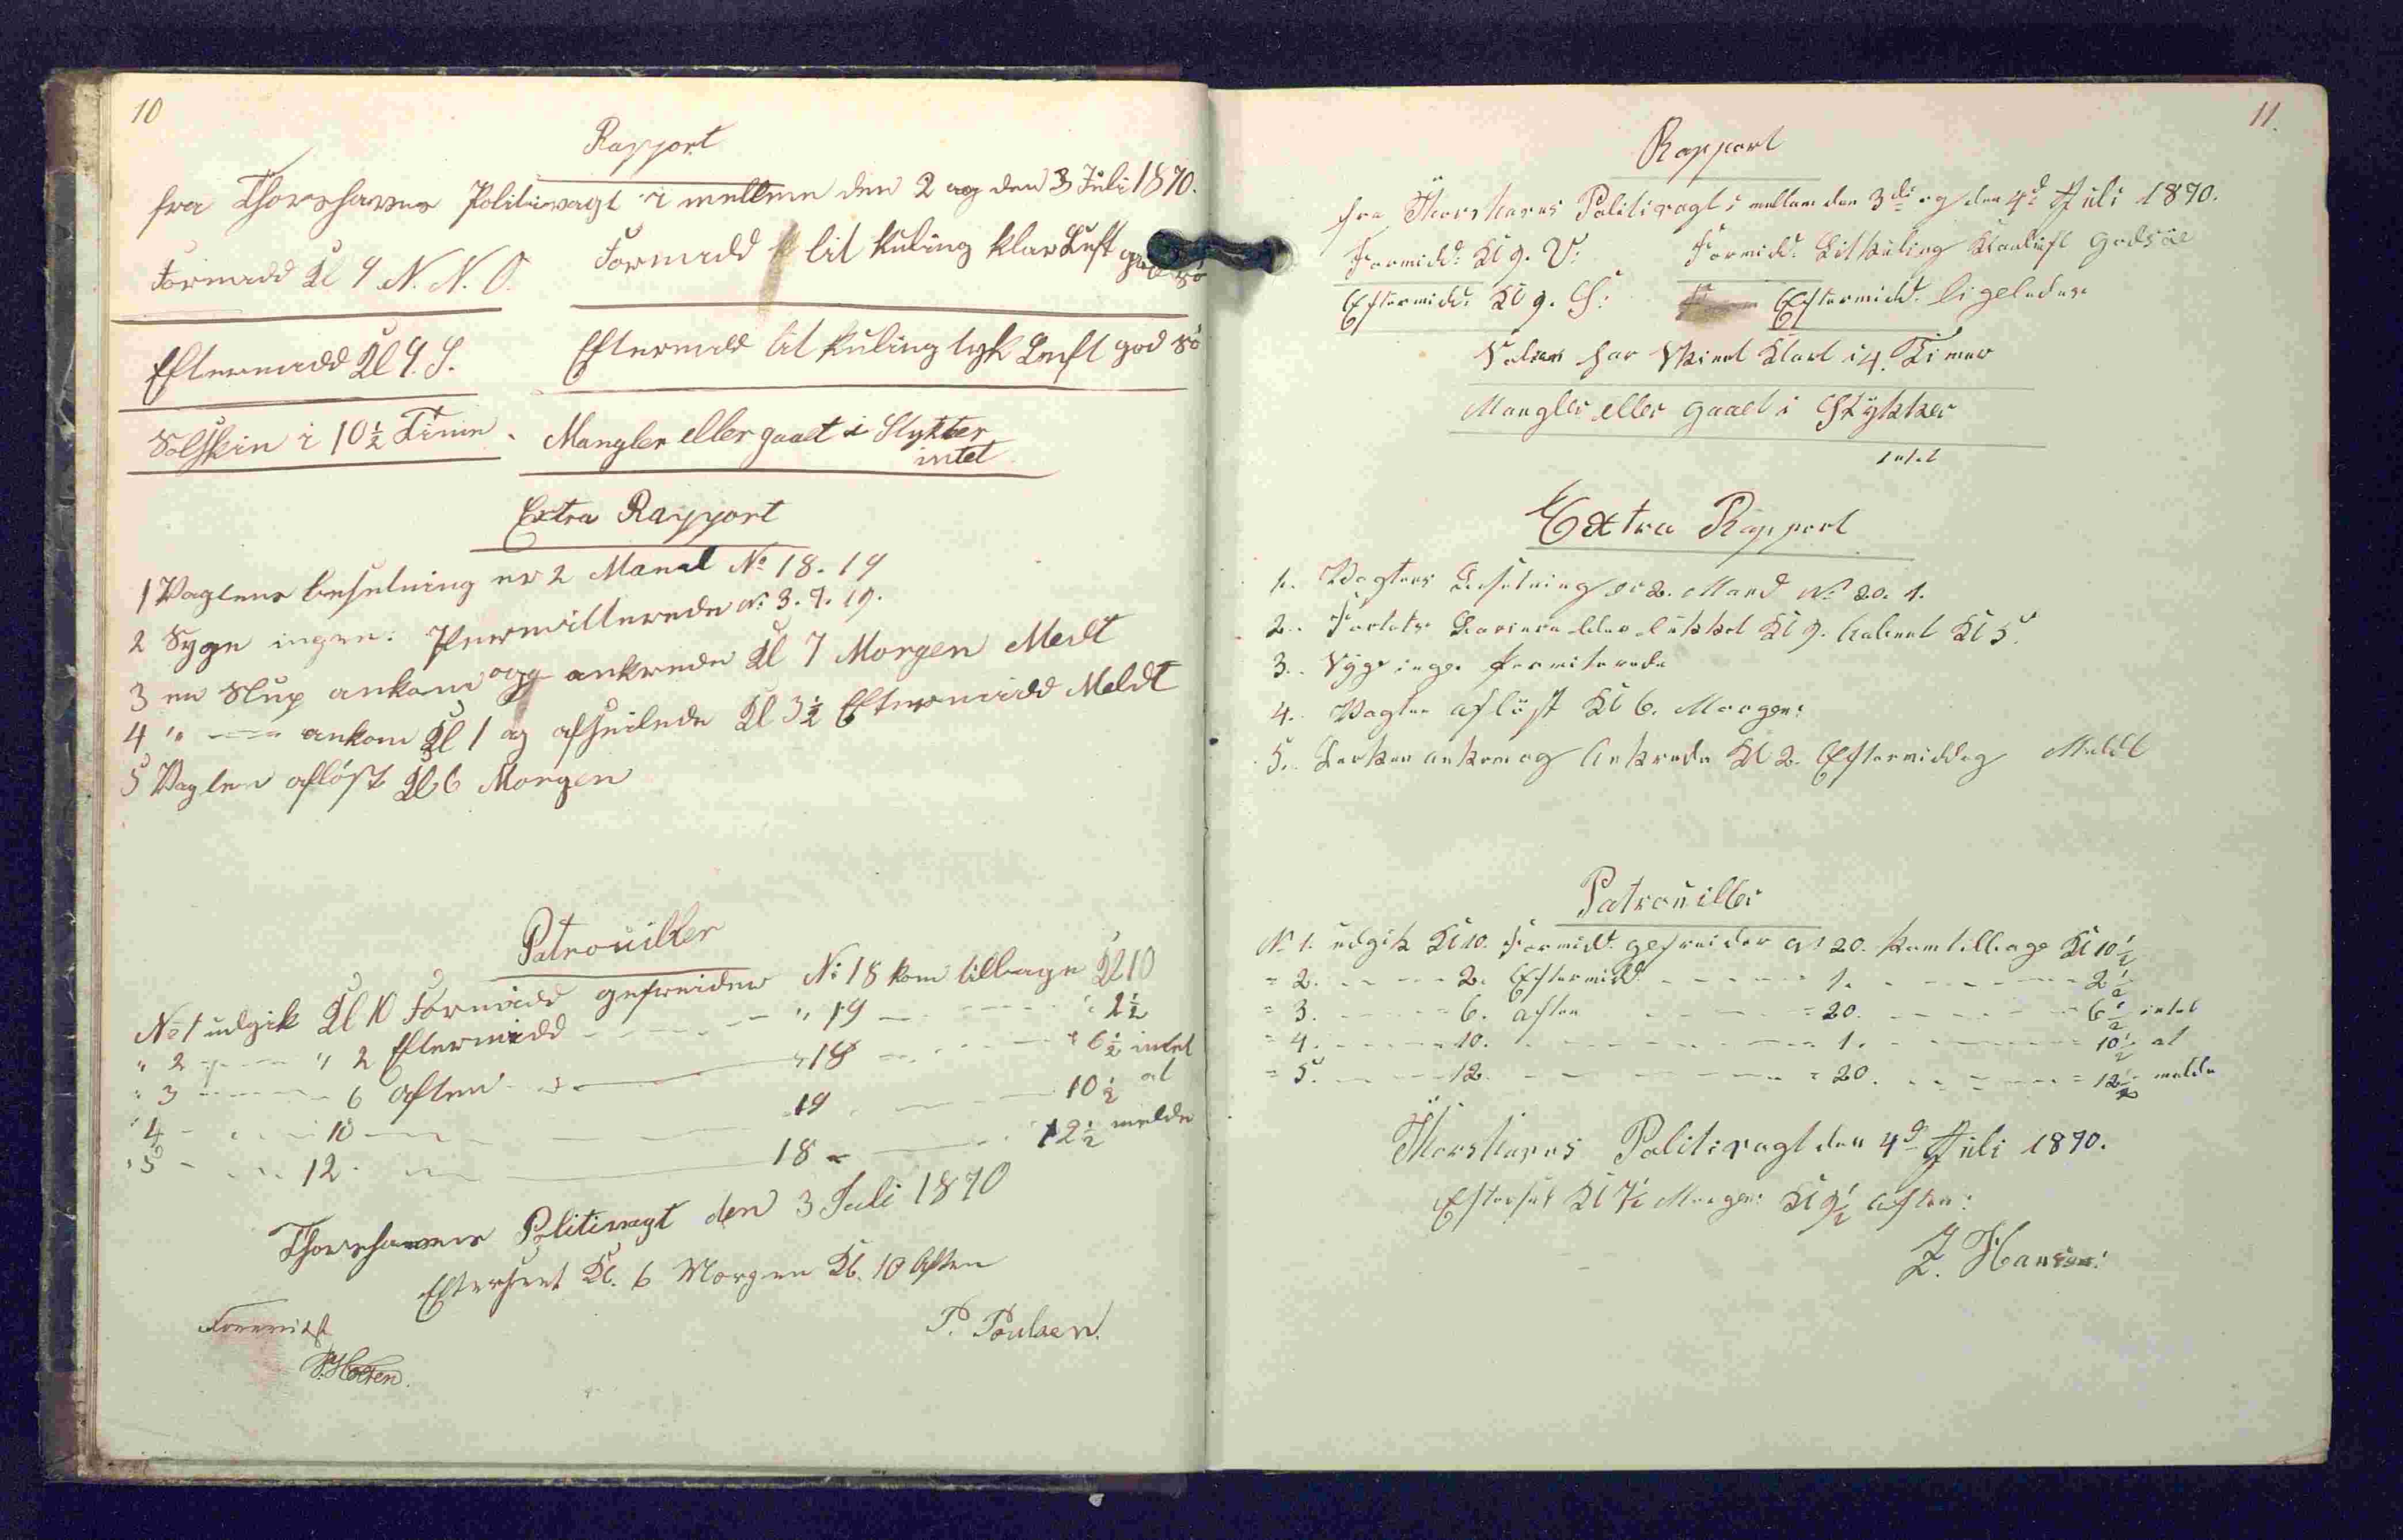 10
Rapport
fra Thorshavns Politivagt i mellem den 2 og den 3 Juli 1870.
Formidd Kl 9 N. N. O.
Formidd lit kuling klar Luft god sö
Eftermidd Kl 9. S.
Eftermidd lit kuling tyk Luft god sö
Solskin i 10½ Time.
Mangler eller gaaet i Stykker
intet
Extra Rapport
1 Vagtens besetning er 2 Mand No 18. 19
2 Syge ingen: Permitterede No 3. 9. 19.
3 en Slup ankom og ankrede Kl 7 Morgen Meldt
4 " --- ankom Kl 1 og afseilede Kl 3½ Eftermidd Meldt
5 Vagten aflöst Kl 6 Morgen
Patrouiller
No 1 udgik Kl 10 Formidd gefreider No 18 kom tilbage Kl 10
" 2 --- " 2 Eftermidd --- " 19 --- " 2½
" 3 --- 6 Aften --- " 18 --- " 6½ intet
" 4 --- 10 --- 19 --- 10½ at
" 5 --- 12 --- 18 --- 12½ melde
Thorshavns Politivagt den 3 Juli 1870
Efterseet Kl. 6 Morgen Kl. 10 Aften
P. Poulsen.
Forevist
11.
Rapport
fra Thorshavns Politivagt i mellem den 3die og den 4d Juli 1870.
Formidd: Kl 9. V:
Formidd: Lit kuling Klarluft God sö
Eftermidd: Kl 9. S:
Eftermidd: ligeledes
Solen har Skient Klart i 4. Timer
Mangler eller Gaaet i Stykker
intet
Extra Rapport
1. Vagtens Besetning er 2. Mand No 20. 1.
2. Fortets lukket Kl 9. aabent Kl 5.
3. Syge inge. permiterede
4. Vagten aflöst Kl 6. Morgen:
5. ankom og Ankrede Kl 2. Eftermiddag Meldt
Patrouiller
No 1. udgik Kl 10. Formidd: gefreider No 20. kom tilbage Kl 10½
= 2. --- 2. Eftermidd: --- 1. --- 2½
= 3. --- 6. Aften --- = 20. --- 6½ intet
= 4. --- 10. --- 1. --- 10½ at
= 5. --- 12. --- = 20. --- = 12½ melde
Thorshavns Politivagt den 4d Juli 1870.
Efterset Kl 7½ Morgen: Kl 9½ Aften:
J. Hansen: